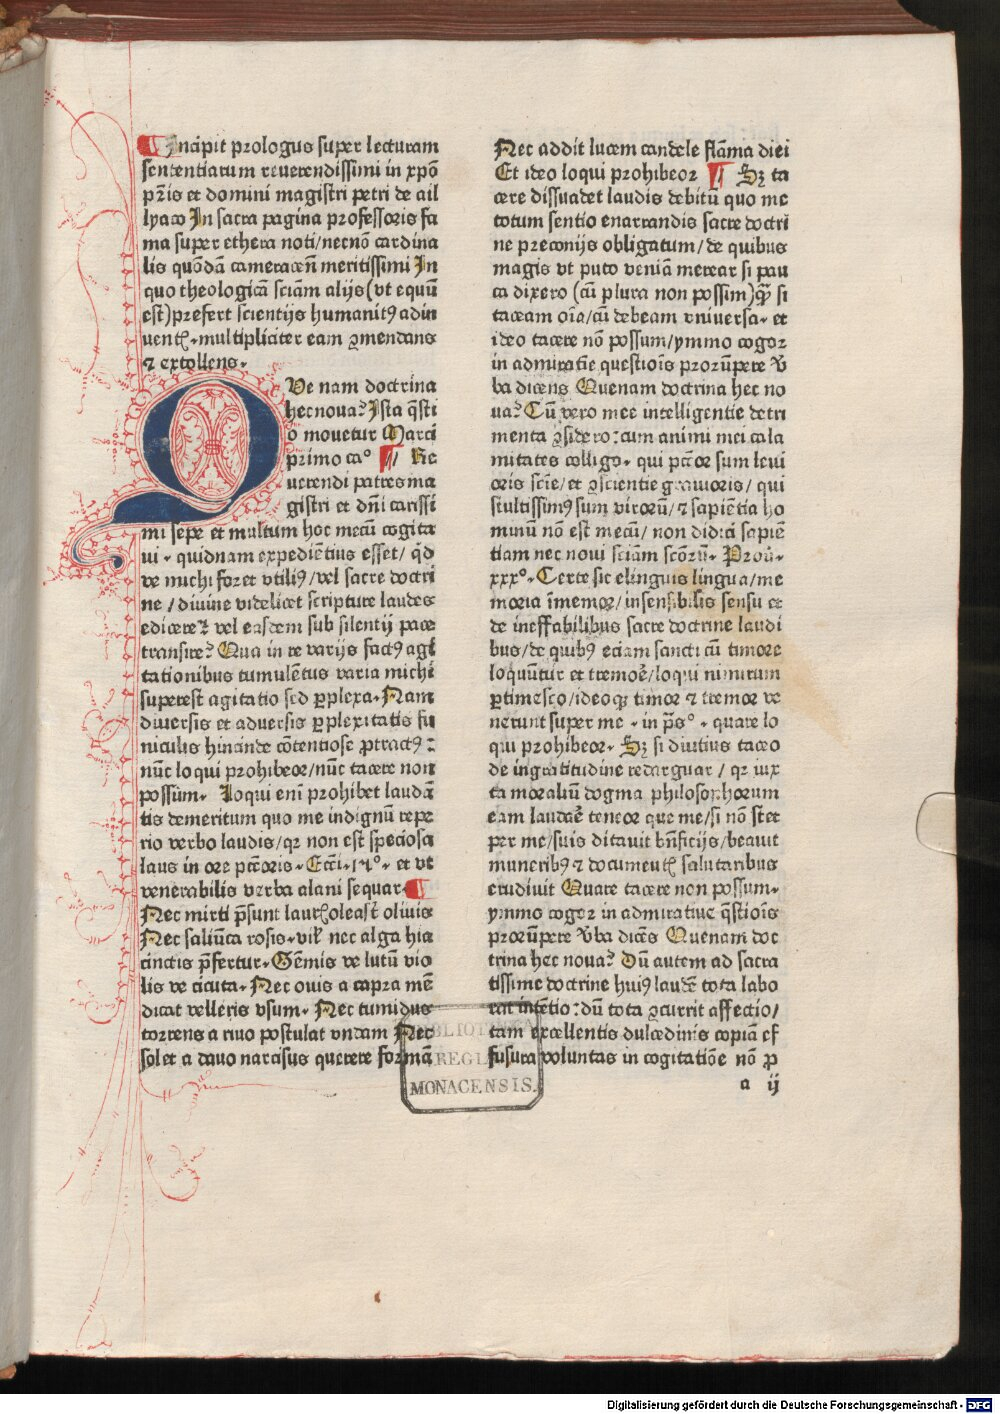 ¶ Incipit prologus super lecturam
sententiarum reuerendissimi in xpō
pr̄is et domini magistri petri de ail
lyaco In sacra pagina professoris fa
ma super ethera noti/necnō cardina
lis quōdā cameraceñ meritissimi In
quo theologicā sciām alijs (vt equū
est) prefert scientijs humanitꝰ adin
uentꝭ·multipliciter eam ꝯmendans
⁊ extollens·
Que nam doctrina
hec noua? Ista q̄sti
o mouetur Marci
primo ca° ¶ Re
uerendi patres ma
gistri et dn̄i carissi
mi sepe et multum hoc mecū cogita
ui · quidnam expediētius esset/ q̄d
ve michi foret vtiliꝰ/vel sacre doctri
ne / diuine videlicet scripture laudes
edicere? vel easdem sub silentij pace
transire? Qua in re varijs factꝰ agi
tationibus tumulētus varia michi
superest agitatio sed ꝑplexa· Nam
diuersis et aduersis ꝑplexitatis fu
niculis hincinde cōtentiose ꝓtractꝰ :
nūc loqui prohibeor/nūc tacere non
possum· Loqui eni prohibet laudā
tis demeritum quo me indignū repe
rio verbo laudis/qꝛ non est speciosa
laus in ore pctōris· Ecci·15°· et vt
venerabilis verba alani sequar· ¶
Nec mirti p̄sunt laurꝭ oleast̄ oliuis
Nec saliūca rosis·vil' nec alga hia
cinctis p̄fertur· Gēmis ve lutū vio
lis ve cicuta· Nec ouis a capra mē
dicat velleris vsum· Nec tumidus
torrens a riuo postulat vndam Nec
solet a dauo narcisus querere formā
Nec addit lucem candele flāma diei
Et ideo loqui prohibeor ¶ Sꝫ ta
cere dissuadet laudis debitū quo me
totum sentio enarrandis sacre doctri
ne preconijs obligatum/de quibus
magis vt puto veniā merear si pau
ca dixero (cū plura non possim) qꝫ si
taceam oīa/cū debeam vniuersa· et
ideo tacere nō possum/ymmo cogor
in admiratiē questiōis prorūpere v̄
ba dicens Quenam doctrina hec no
ua? Cū vero mee intelligentie detri
menta ꝯsidero:cum animi mei cala
mitates colligo· qui pctōr sum leui
oris scīe/ et ꝯscientie grauioris/ qui
stultissimꝰ sum virorū/ ⁊ sapiētia ho
minū nō est mecū/ non didici sapiē
tiam nec noui sciām scōrū· Prou·
xxx°· Certe sic elinguis lingua/me
moria īmemor/insensibilis sensu et
de ineffabilibus sacre doctrine laudi
bus/de quibꝰ eciam sancti cū timore
loquūtur et tremoē/loqui nimirum
ꝑtimesco/ideoqꝫ timor ⁊ tremor ve
nerunt super me · in p̄s°· quare lo
qui prohibeor· Sꝫ si diutius taceo
de ingratitudine redarguar / qꝛ iux
ta moraliū dogma philosophorum
eam laudaē teneor que me/si nō stet
per me/suis ditauit bn̄ficijs/beauit
muneribꝰ ⁊ documentꝭ salutaribus
erudiuit Quare tacere non possum·
ymmo cogor in admiratiue q̄stiōis
prorūpere v̄ba dicēs Quenam doc
trina hec noua? Dū autem ad sacra
tissime doctrine huiꝰ laudē tota labo
rat intētio:dū tota ꝯcurrit affectio/
tam excellentis dulcedinis copiā ef
fusura voluntas in cogitatiōe nō ꝓ
a ij
BIBLIOTHECA
REGIA
MONACENSIS.
Digitalisierung gefördert durch die Deutsche Forschungsgemeinschaft - DFG